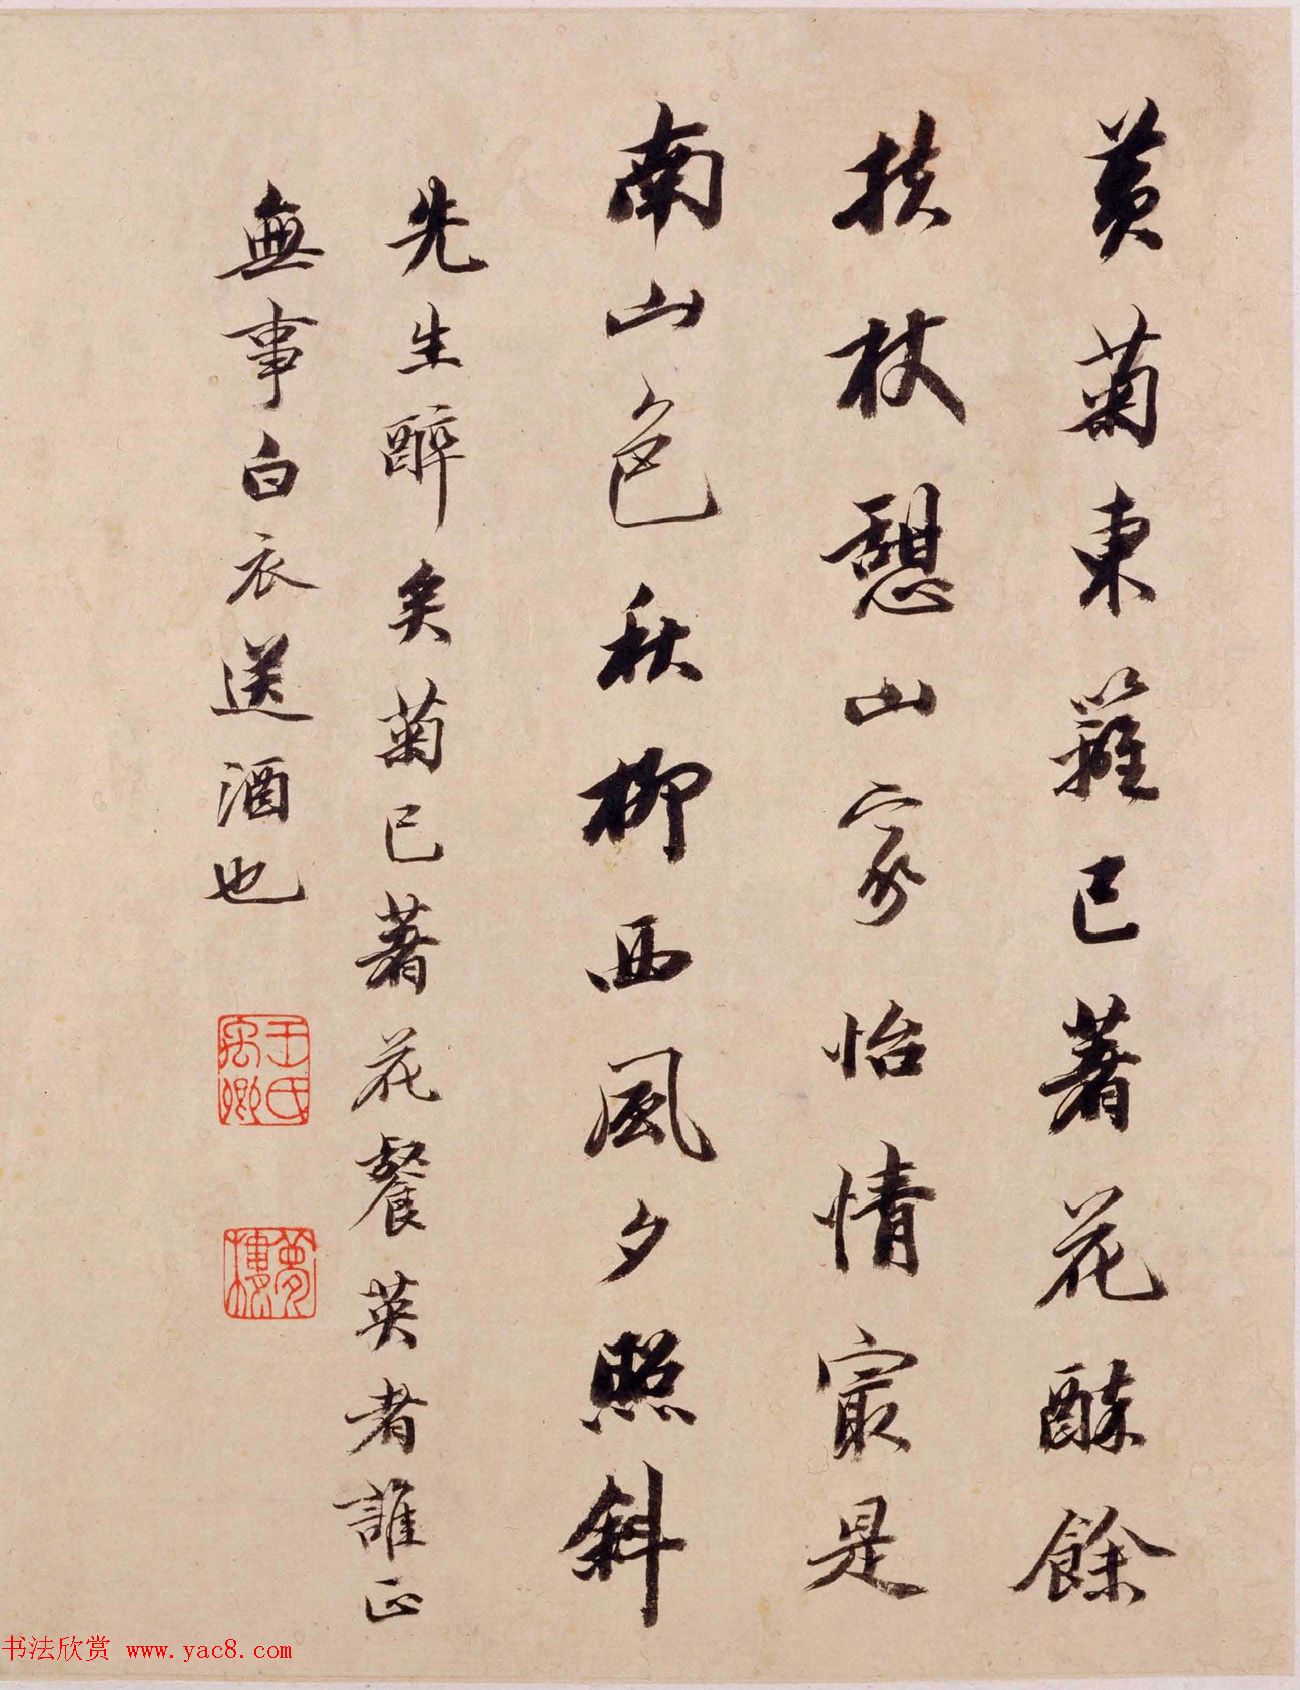 黄菊東籬已著花酥餘
扶杖憩山家怡情寂是
南山色秋柳西風夕照斜
先生醉矣菊已著花餐英者誰正
無事白衣送酒也
王氏禹卿
夢樓
书法欣赏 www.yac8.com